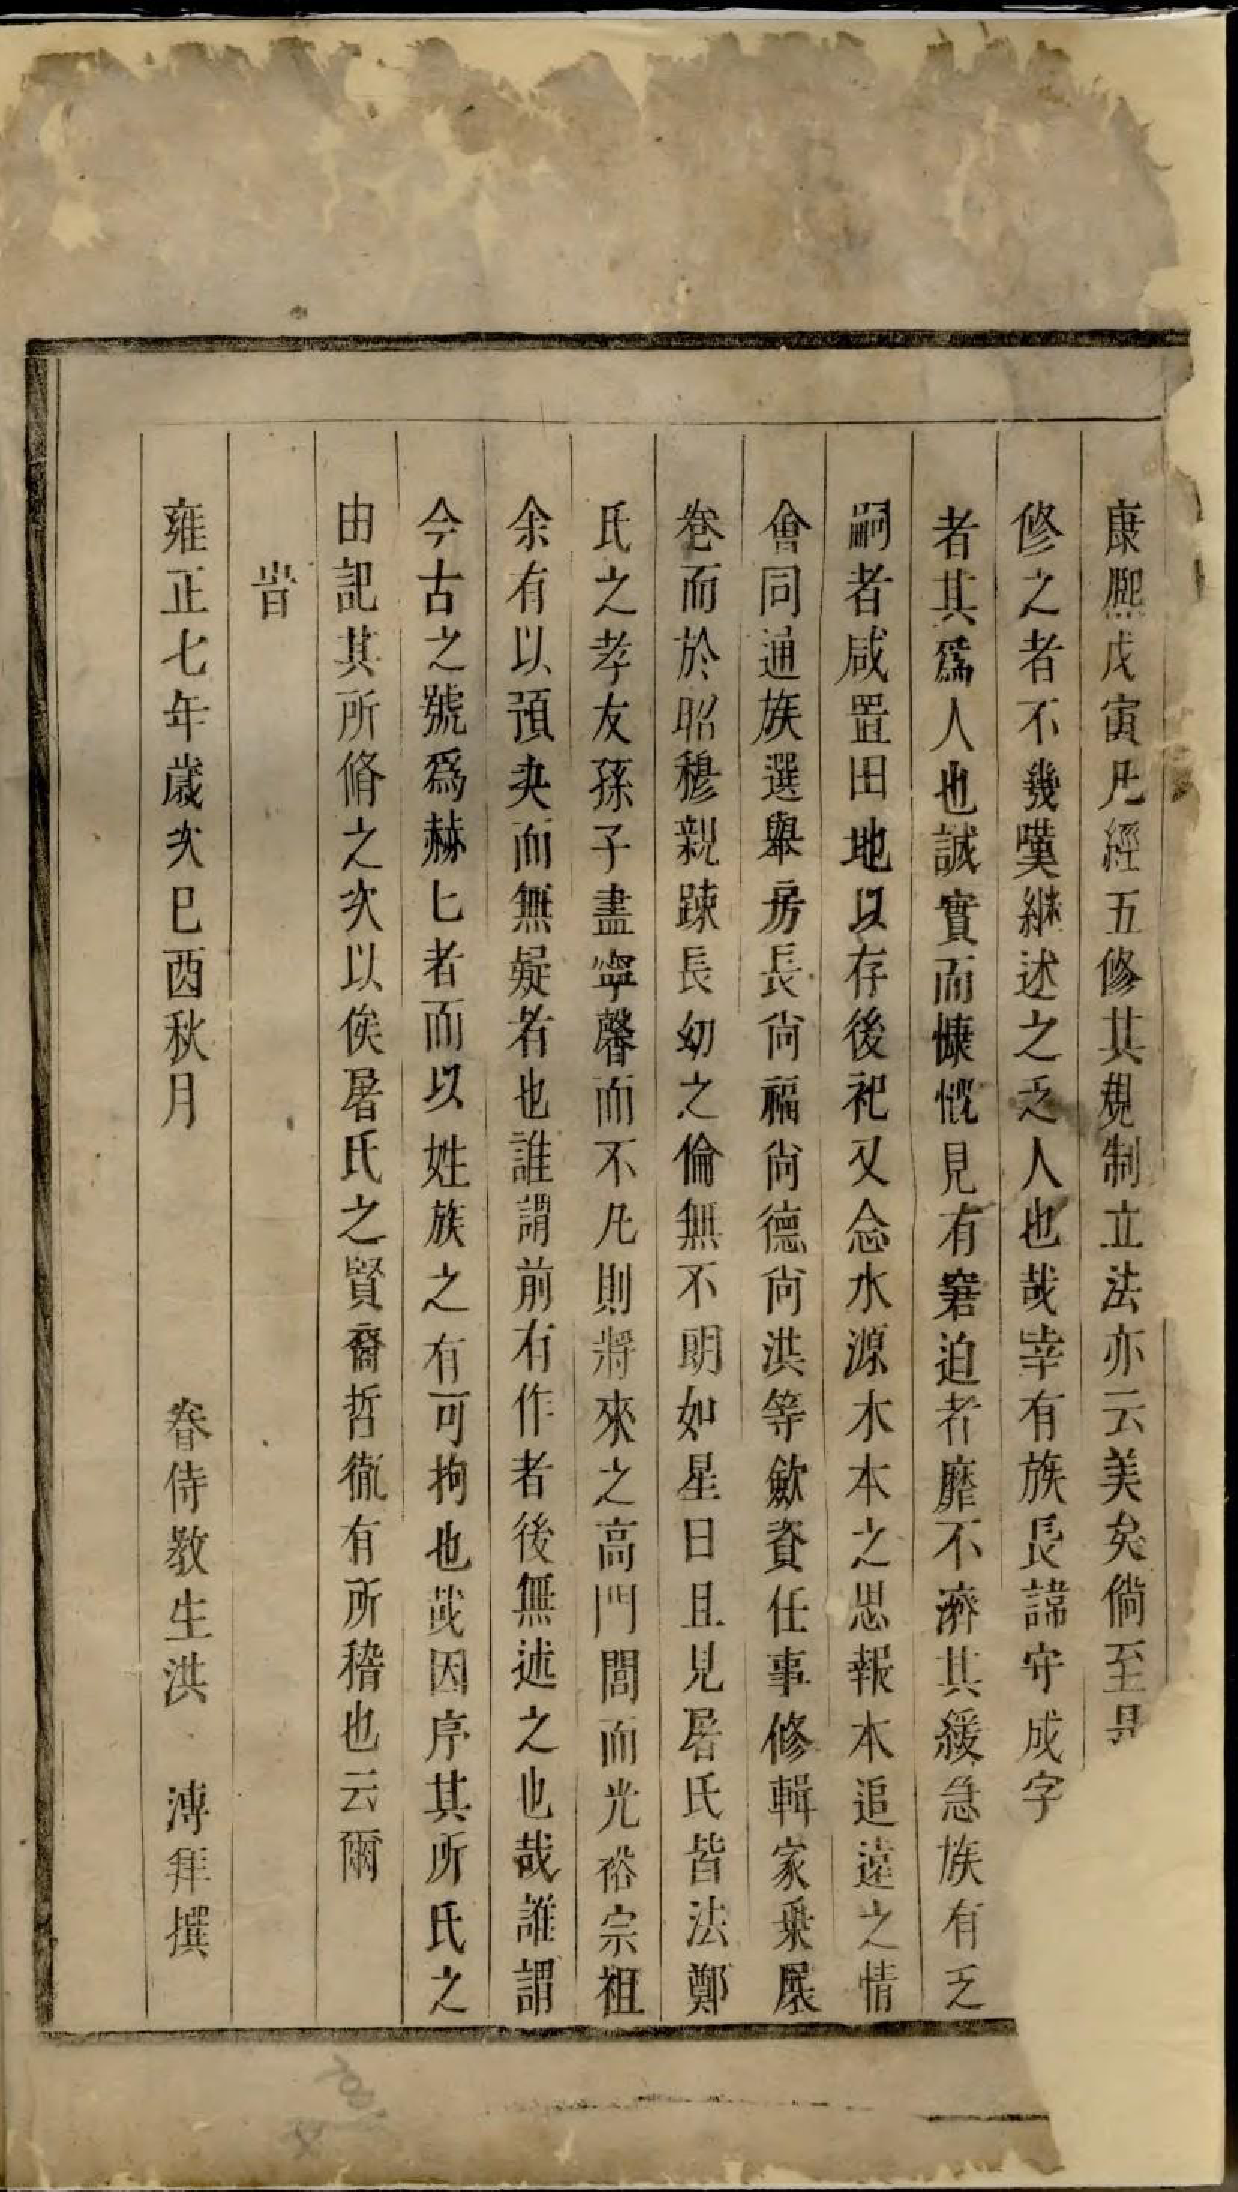 康熙戊寅凡經五修其規制立法亦云美矣倘至是
修之者不幾嘆継述之乏人也哉幸有族長諱守成字
者其爲人也誠實而慷慨見有窘迫者靡不濟其緩急族有乏
嗣者咸置田地以存後祀又念水源木本之思報本追遠之情
會同通族選舉房長尚福尚德尚洪等歛資任事修輯家乗展
卷而於昭穆親踈長幼之倫無不明如星日且見屠氏皆法鄭
氏之孝友孫子盡寧馨而不凢則將來之高門閭而光裕宗祖
余有以預夬而無疑者也誰謂前有作者後無述之也哉誰謂
今古之號爲赫匕者而以姓族之有可拘也哉因序其所氏之
由記其所脩之次以俟屠氏之賢裔哲徹有所稽也云爾
旹
雍正七年歲次巳酉秋月 眷侍教生洪 溥拜撰